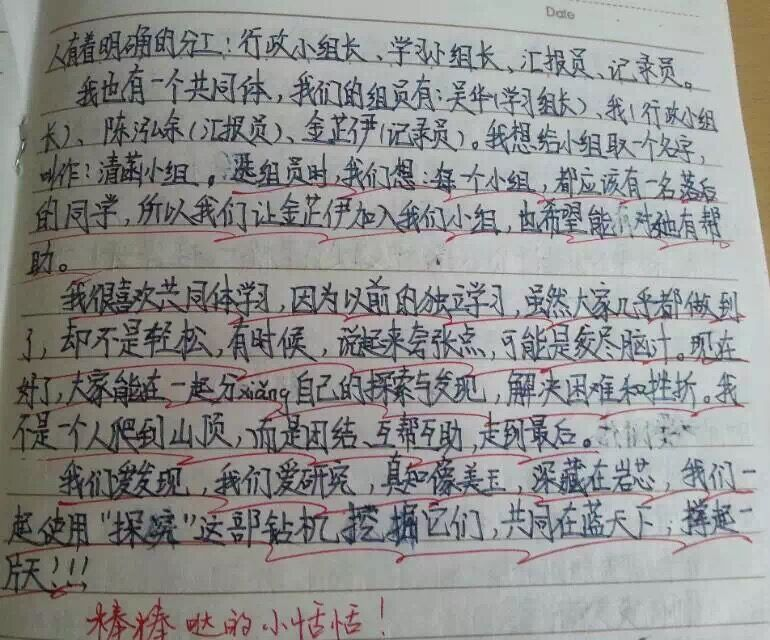 Date
人有着明确的分工：行政小组长、学习小组长、汇报员、记录员。
我也有一个共同体，我们的组员有：吴华(学习组长)、我(行政小组
长)、陈泓余(汇报员)、金芷伊(记录员)。我想给小组取一个名字，
叫作：清菡小组。选组员时，我们想：每一个小组，都应该有一名落后
的同学，所以我们让金芷伊加入我们小组，也希望能对她有帮
助。
我很喜欢共同体学习，因为以前的独立学习，虽然大家几乎都做到
了，却不是轻松，有时候，说起来夸张点，可能是绞尽脑汁。现在
好了，大家能在一起分xiǎng自己的探索与发现，解决困难和挫折。我
不是一个人爬到山顶，而是团结、互帮互助，走到最后。
我们爱发现，我们爱研究，真知像美玉，深藏在岩芯，我们一
起使用“探究”这部钻机挖掘它们，共同在蓝天下，撑起一
片天!!!
棒棒哒的小恬恬！